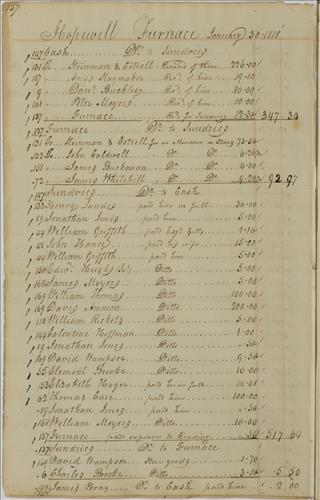 137
Hopewell Furnace January 30. 1818
147 Cash Dr. to Sundries
131 To Steinman & Cotrell Received of them 226.00
157 Amos Slaymaker Recd. of him 19.00
9 Danl. Buckley Recd. of him 80.00
161 Peter Moyers Recd. of him 10.00
137 Furnace Recd. for Sundries 12.30 347 30
137 Furnace Dr. to Sundries
131 To Steinman & Cotrell for
John Caldwell Do. Do.
158 James Buchanan Do. Do. 4.00
72 James Whitehill Do. Do. 92 97
147 Sundries Dr. to Cash
153 Henry paid him in full 30.00
19 Jonathan Jones paid him 5.00
44 William Griffith paid
41 John Henry paid his wife 15.00
44 William Griffith paid him 5.00
150 Edwd. Hughs Ditto 5.00
168 James Moyers Ditto 3.00
169 William Thomas Ditto 100.00
169 David Ammon Ditto 200.00
110 William Ricketts Ditto 5.00
144 Valentine Hoffman Ditto 1.00
19 Jonathan Jones Ditto .50
169 David Wampsor Ditto
55 Clement Brooke Ditto 10.00
153 Elizabeth Hager paid her in full 14.48
62 Thomas Care paid him 100.00
19 Jonathan Jones paid him
168 William Moyers Ditto 10.00
137 Furnace paid expences to Reading 517 64
137 Sundries Dr. to Furnace
149 David Wampsor Store goods 1.70
6 Charles Brooke Ditto 5 30
James Gray Dr. to Cash paid him 2 00